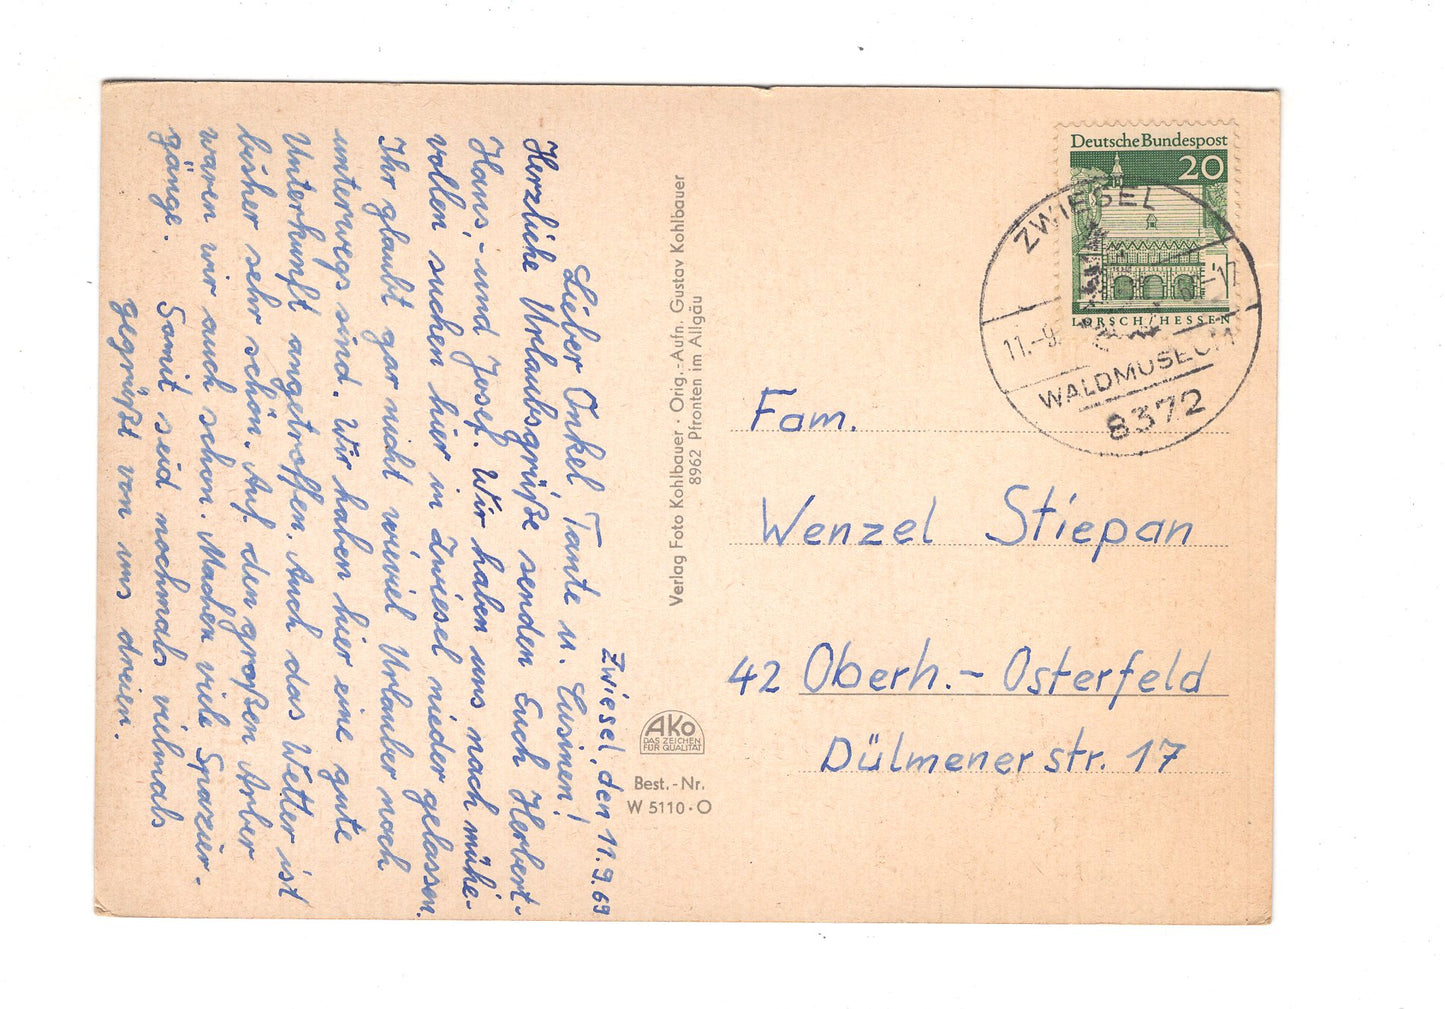 Zwiesel, den 11.9.69
Lieber Onkel Tante u. Cusinen!
Herzliche Urlaubsgrüße senden Euch Herbert-
Hans,- und Josef. Wir haben uns nach mühe-
vollen suchen hier in Zwiesel nieder gelassen.
Ihr glaubt gar nicht wieviel Urlauber noch
unterwegs sind. Wir haben hier eine gute
Unterkunft angetroffen. Auch das Wetter ist
bisher sehr schön. Auf den großen Arber
waren wir auch schon. Machen viele Spazier-
gänge.
Somit seid nochmals vielmals
gegrüßt von uns dreien.
Verlag Foto Kohlbauer · Orig.-Aufn. Gustav Kohlbauer
8962 Pfronten im Allgäu
AKO
DAS ZEICHEN
FÜR QUALITÄT
Best.-Nr.
W 5110·O
Deutsche Bundespost
20
LORSCH/HESSEN
ZWIESEL
11.-9.
-17
WALDMUSEUM
8372
Fam.
Wenzel Stiepan
42 Oberh.- Osterfeld
Dülmener str. 17